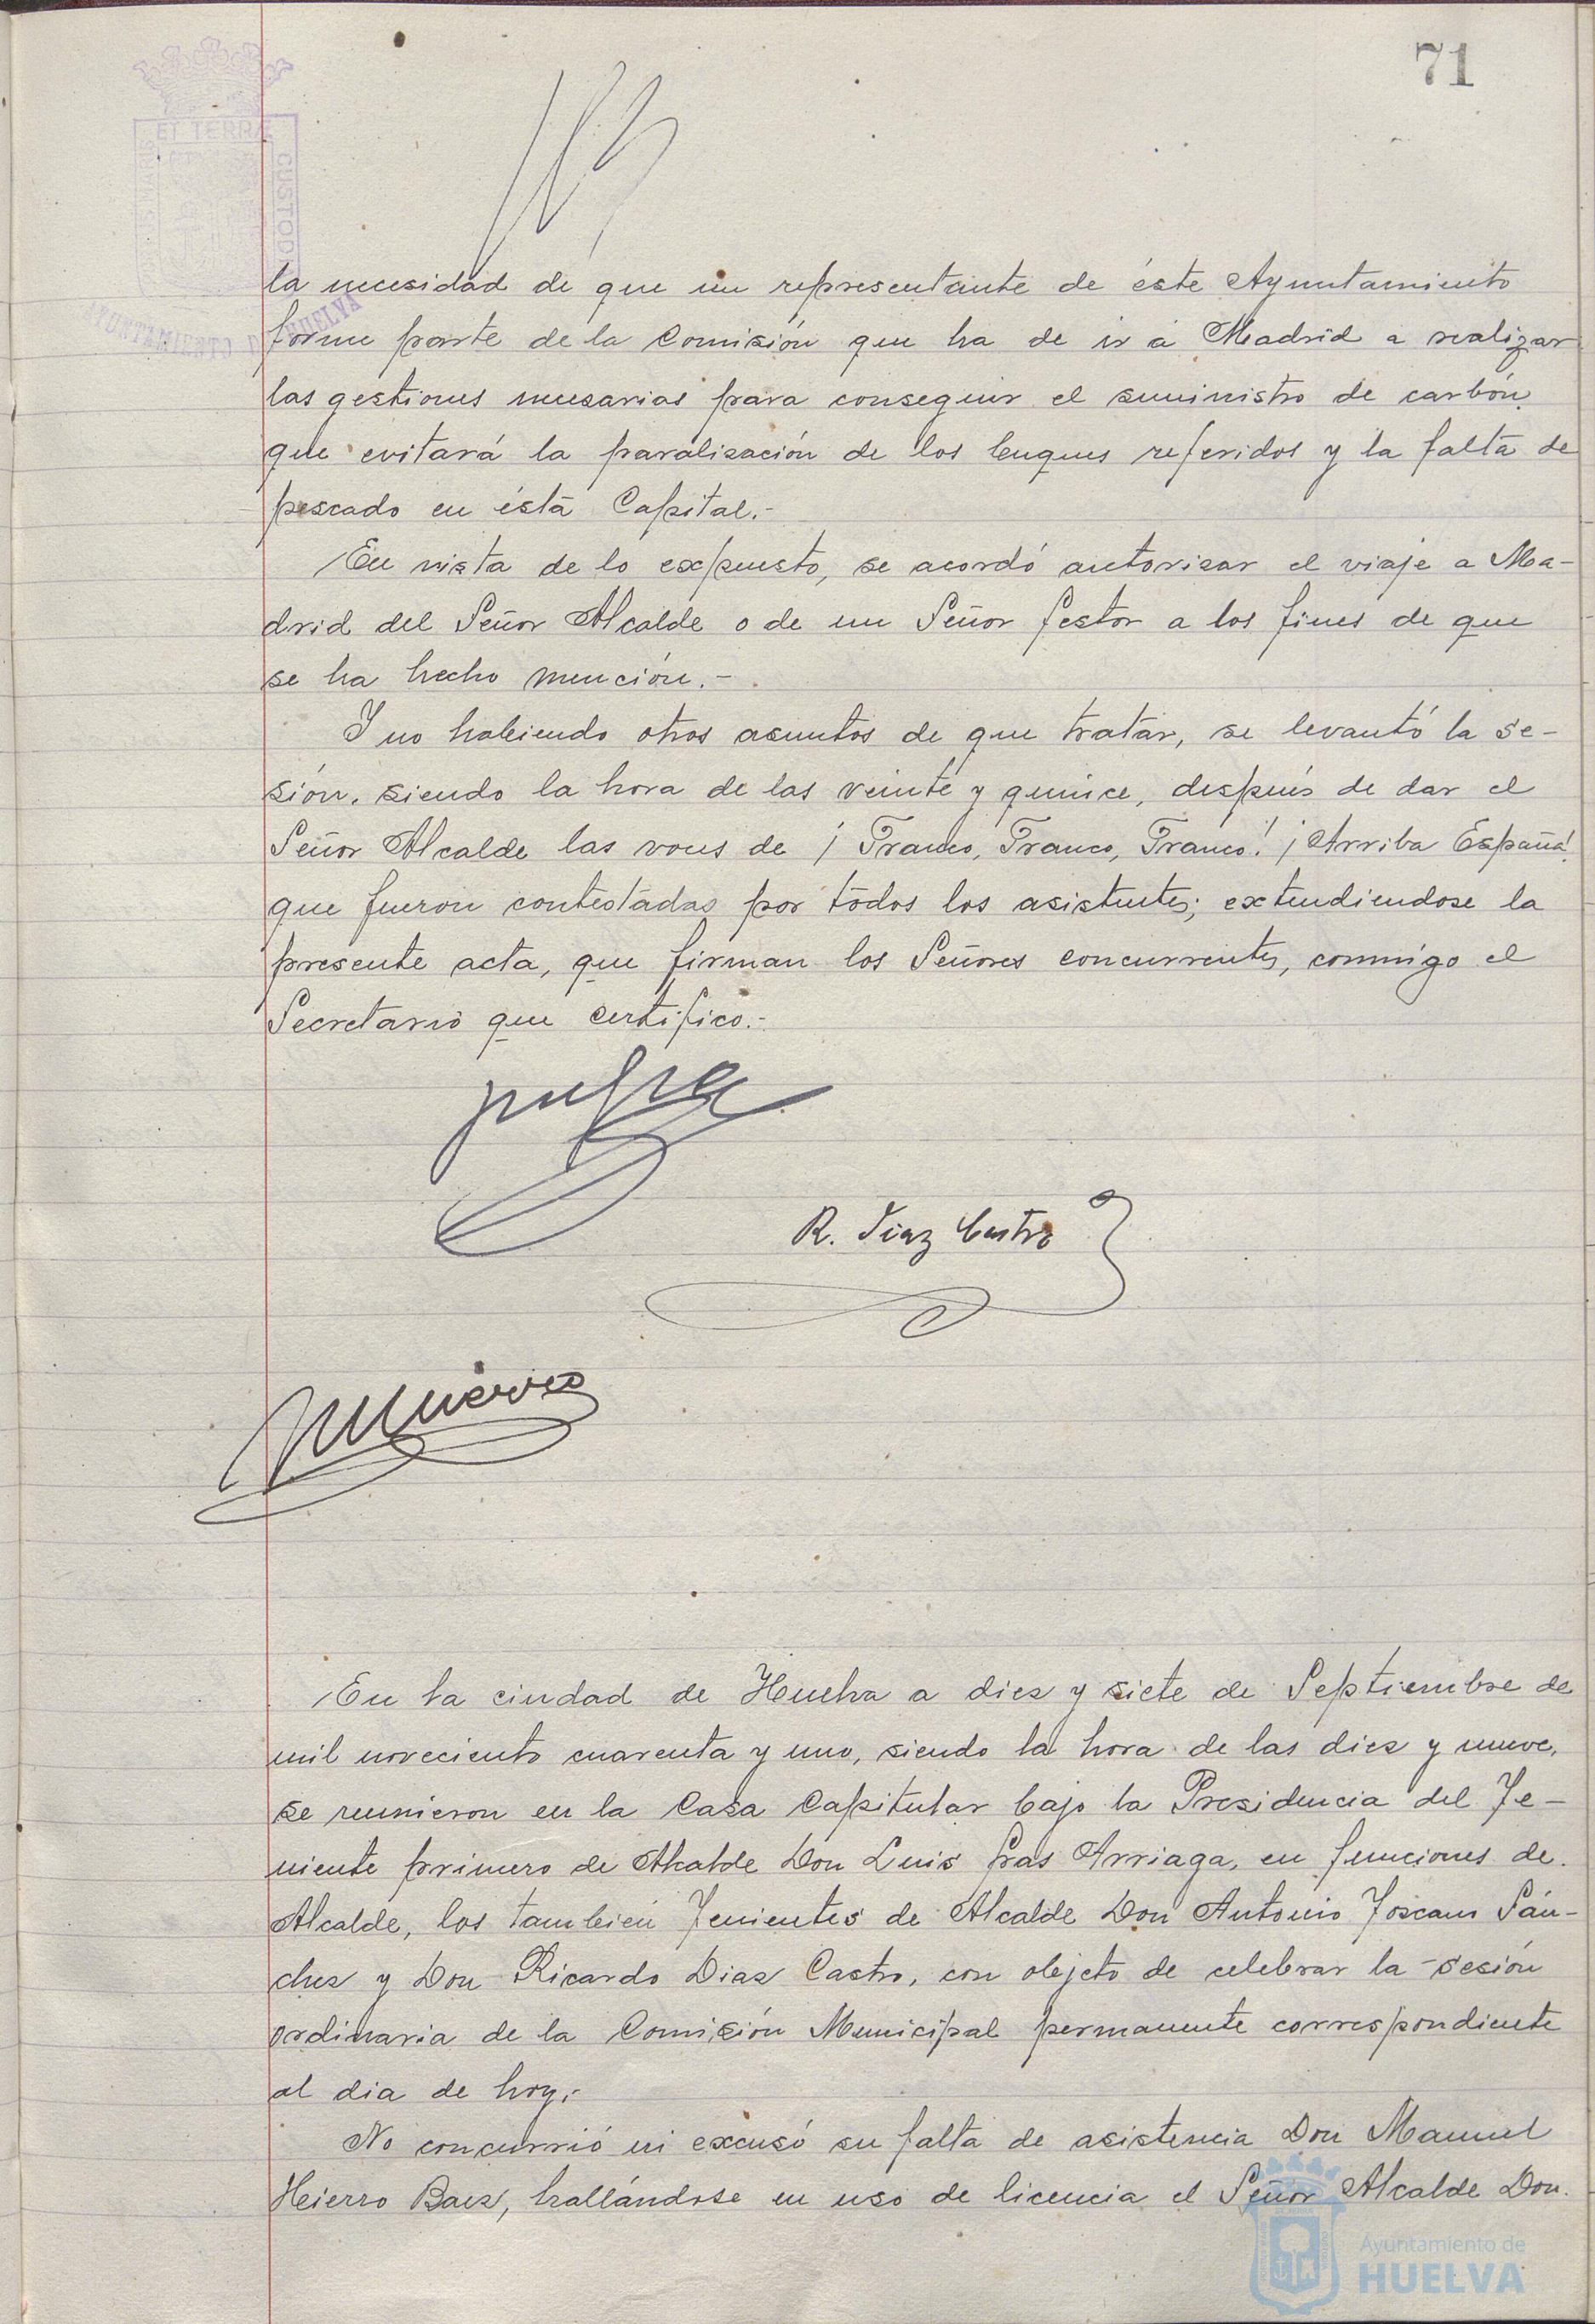 71
ET TERRÆ
CUSTODI
AYUNTAMIENTO DE HUELVA
la necesidad de que un representante de éste Ayuntamiento
forme parte de la Comisión que ha de ir a Madrid a realizar
las gestiones necesarias para conseguir el suministro de carbón
que evitará la paralización de los buques referidos y la falta de
pescado en ésta Capital.-
En vista de lo expuesto, se acordó autorizar el viaje a Ma-
drid del Señor Alcalde o de un Señor Gestor a los fines de que
se ha hecho mención.-
Y no habiendo otros asuntos de que tratar, se levantó la se-
sión, siendo la hora de las veinte y quince, después de dar el
Señor Alcalde las voces de ¡Franco, Franco, Franco! ¡Arriba España!
que fueron contestadas por todos los asistentes; extendiendose la
presente acta, que firman los Señores concurrentes, conmigo el
Secretario que certifico.-
R. Diaz Castro
En la ciudad de Huelva a diez y siete de Septiembre de
mil novecientos cuarenta y uno, siendo la hora de las diez y nueve,
se reunieron en la Casa Capitular bajo la Presidencia del Te-
niente primero de Alcalde Don Luis Gras Arriaga, en funciones de
Alcalde, los tambien Tenientes de Alcalde Don Antonio Toscano Sán-
chez y Don Ricardo Diaz Castro, con objeto de celebrar la sesión
ordinaria de la Comisión Municipal permanente correspondiente
al dia de hoy.-
No concurrió ni excusó su falta de asistencia Don Manuel
Hierro Baez, hallándose en uso de licencia el Señor Alcalde Don
Ayuntamiento de
HUELVA